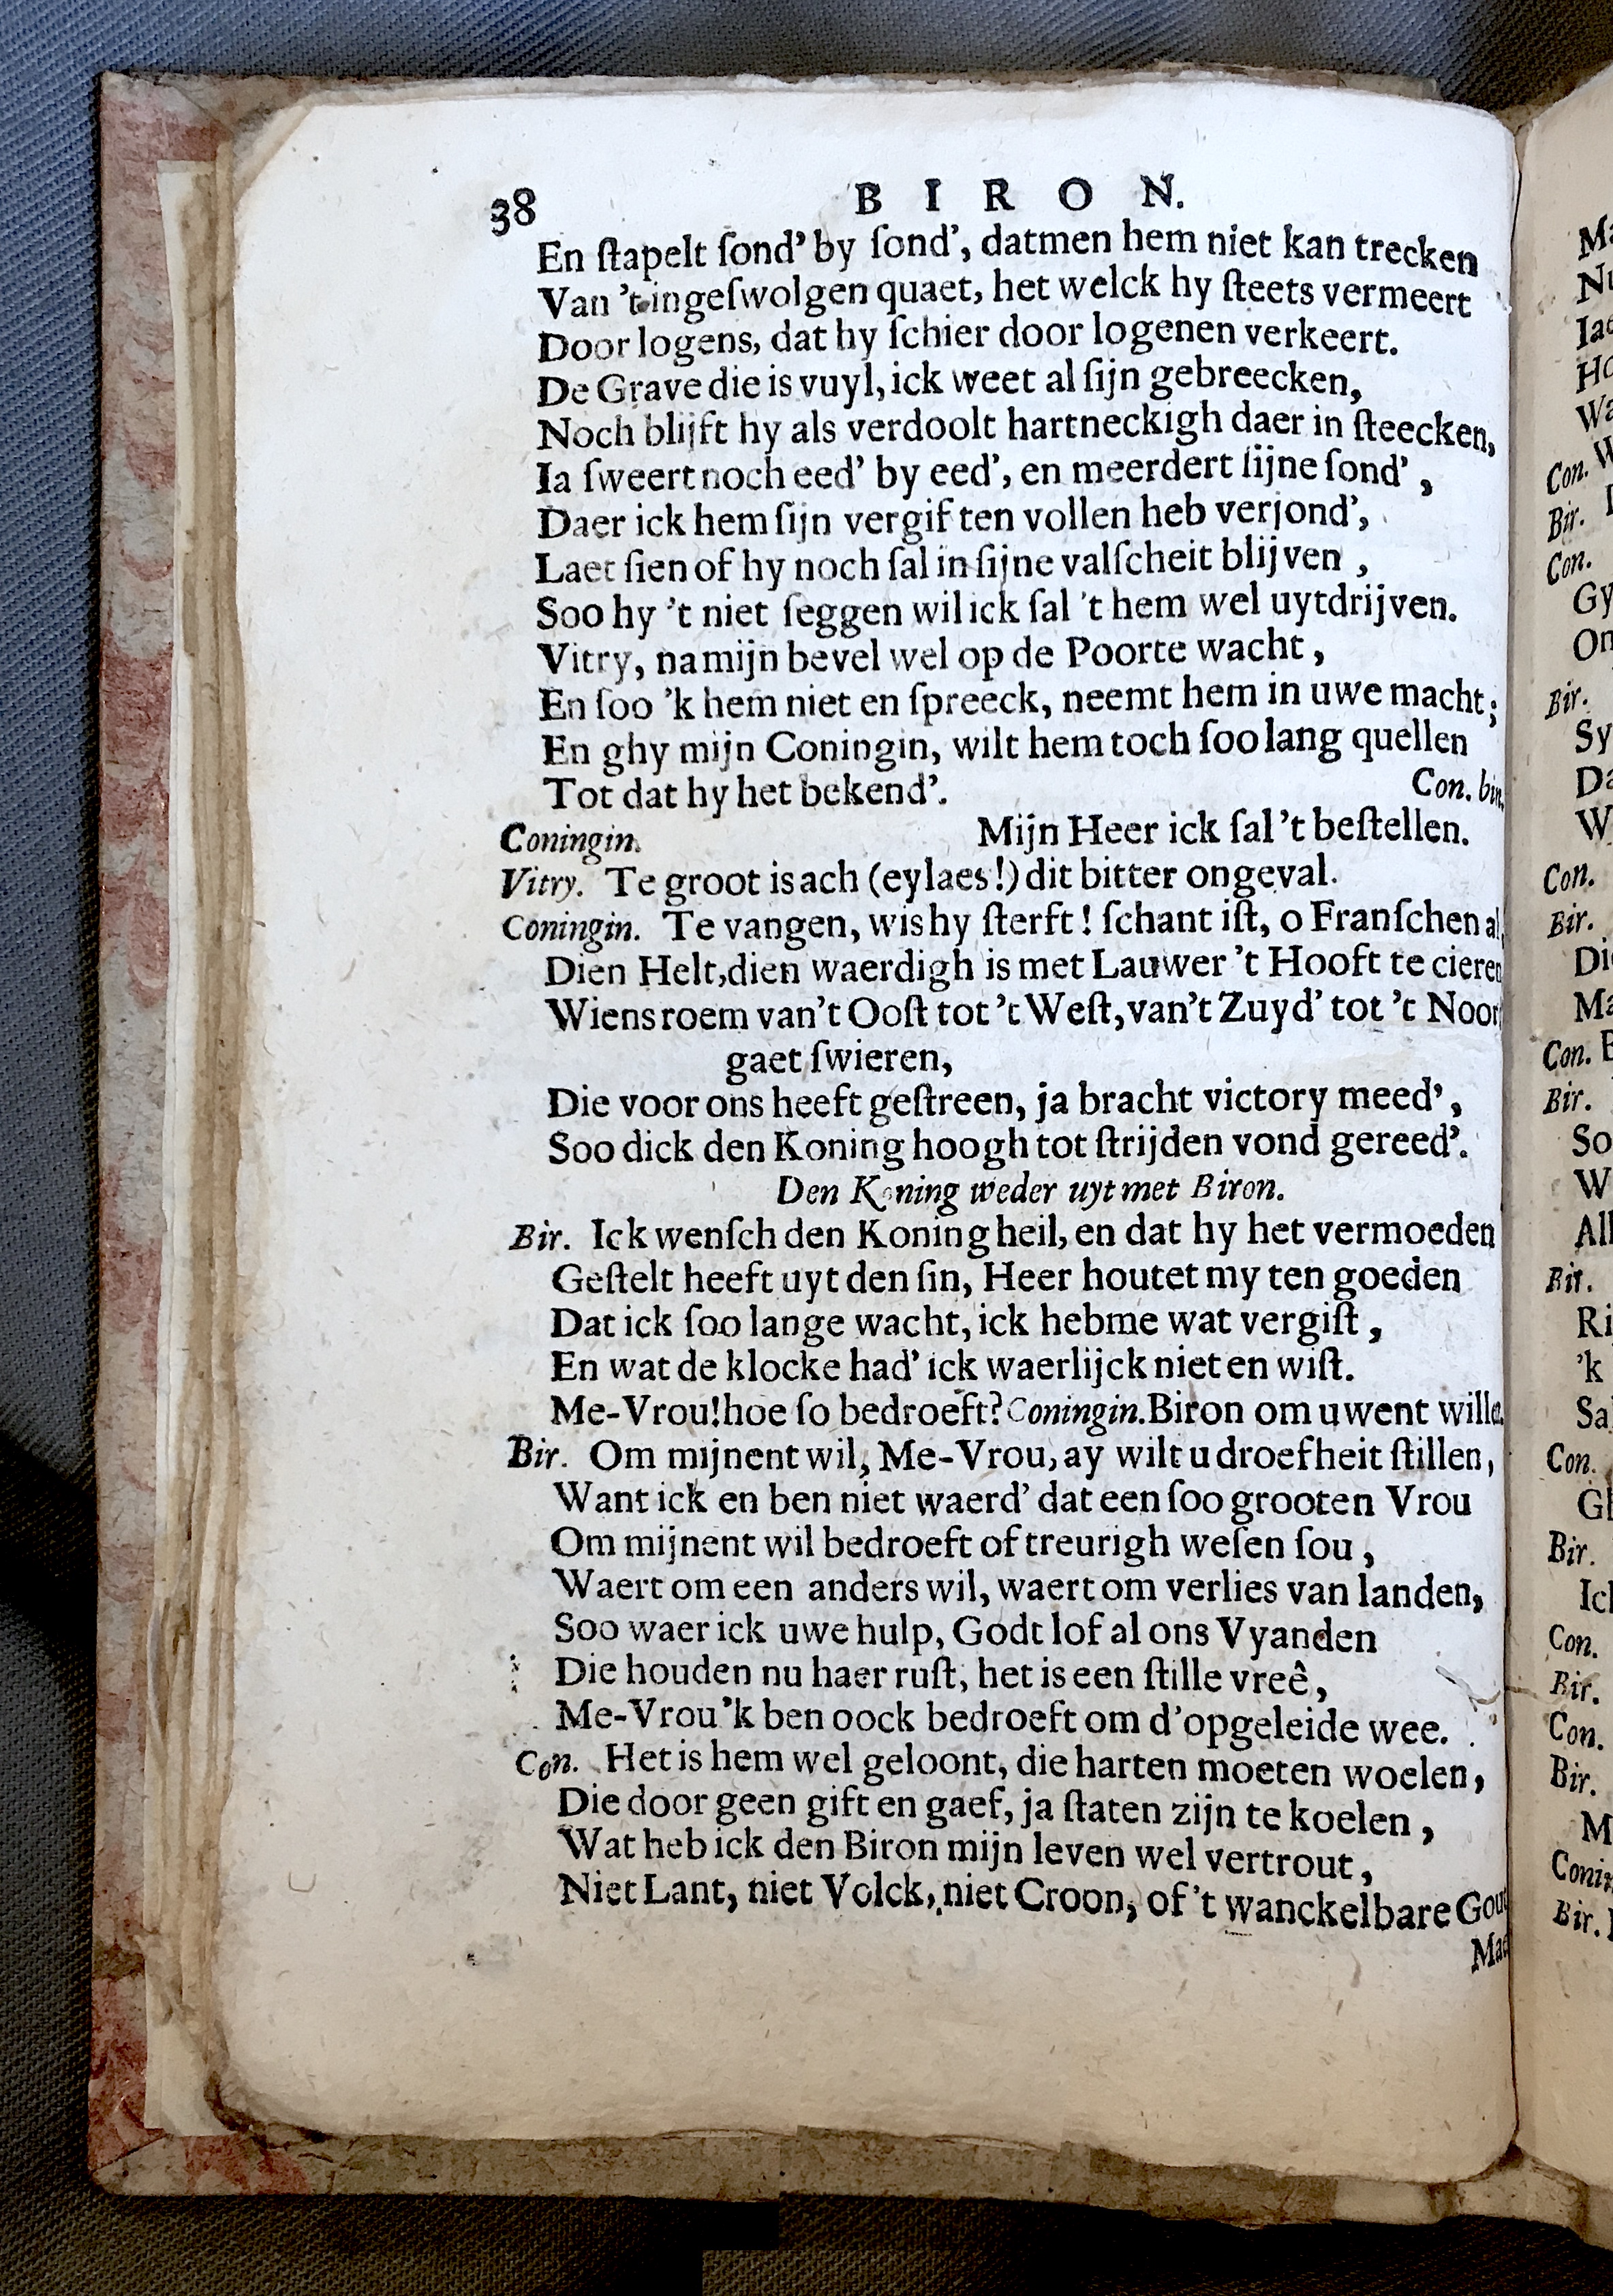 38 BIRON.
En ſtapelt ſond’ by ſond’, datmen hem niet kan trecken
Van ’t ingeſwolgen quaet, het welck hy ſteets vermeert
Door logens, dat hy ſchier door logenen verkeert.
De Grave die is vuyl, ick weet al ſijn gebreecken,
Noch blijft hy als verdoolt hartneckigh daer in ſteecken,
Ia ſweert noch eed’ by eed’, en meerdert ſijne ſond’,
Daer ick hem ſijn vergif ten vollen heb verjond’,
Laet ſien of hy noch ſal in ſijne valſcheit blijven,
Soo hy ’t niet ſeggen wil ick ſal ’t hem wel uytdrijven.
Vitry, na mijn bevel wel op de Poorte wacht,
En ſoo ’k hem niet en ſpreeck, neemt hem in uwe macht;
En ghy mijn Coningin, wilt hem toch ſoo lang quellen
Tot dat hy het bekend’. Con. bin.
Coningin. Mijn Heer ick ſal ’t beſtellen.
Vitry. Te groot is ach (eylaes!) dit bitter ongeval.
Coningin. Te vangen, wis hy ſterft! ſchant iſt, o Franſchen al,
Dien Helt, dien waerdigh is met Lauwer ’t Hooft te cieren
Wiens roem van ’t Ooſt tot ’t Weſt, van ’t Zuyd’ tot ’t Noor
gaet ſwieren,
Die voor ons heeft geſtreen, ja bracht victory meed’,
Soo dick den Koning hoogh tot ſtrijden vond gereed’.
Den Koning weder uyt met Biron.
Bir. Ick wenſch den Koning heil, en dat hy het vermoeden
Geſtelt heeft uyt den ſin, Heer houtet my ten goeden
Dat ick ſoo lange wacht, ick heb me wat vergiſt,
En wat de klocke had’ ick waerlijck niet en wiſt.
Me-Vrou! hoe ſo bedroeft? Coningin. Biron om uwent wille.
Bir. Om mijnent wil, Me-Vrou, ay wilt u droefheit ſtillen,
Want ick en ben niet waerd’ dat een ſoo grooten Vrou
Om mijnent wil bedroeft of treurigh weſen ſou,
Waert om een anders wil, waert om verlies van landen,
Soo waer ick uwe hulp, Godt lof al ons Vyanden
Die houden nu haer ruſt, het is een ſtille vreê,
Me-Vrou ’k ben oock bedroeft om d’opgeleide wee.
Con. Het is hem wel geloont, die harten moeten woelen,
Die door geen gift en gaef, ja ſtaten zijn te koelen,
Wat heb ick den Biron mijn leven wel vertrout,
Niet Lant, niet Volck, niet Croon, of ’t wanckelbare Gou
Ma
Con.
Bir.
Con.
Gy
Bir.
Sy
Con.
Bir.
Con.
Bir.
So
Bir.
Con.
Bir.
Con.
Bir.
Con.
Bir.
Bir.